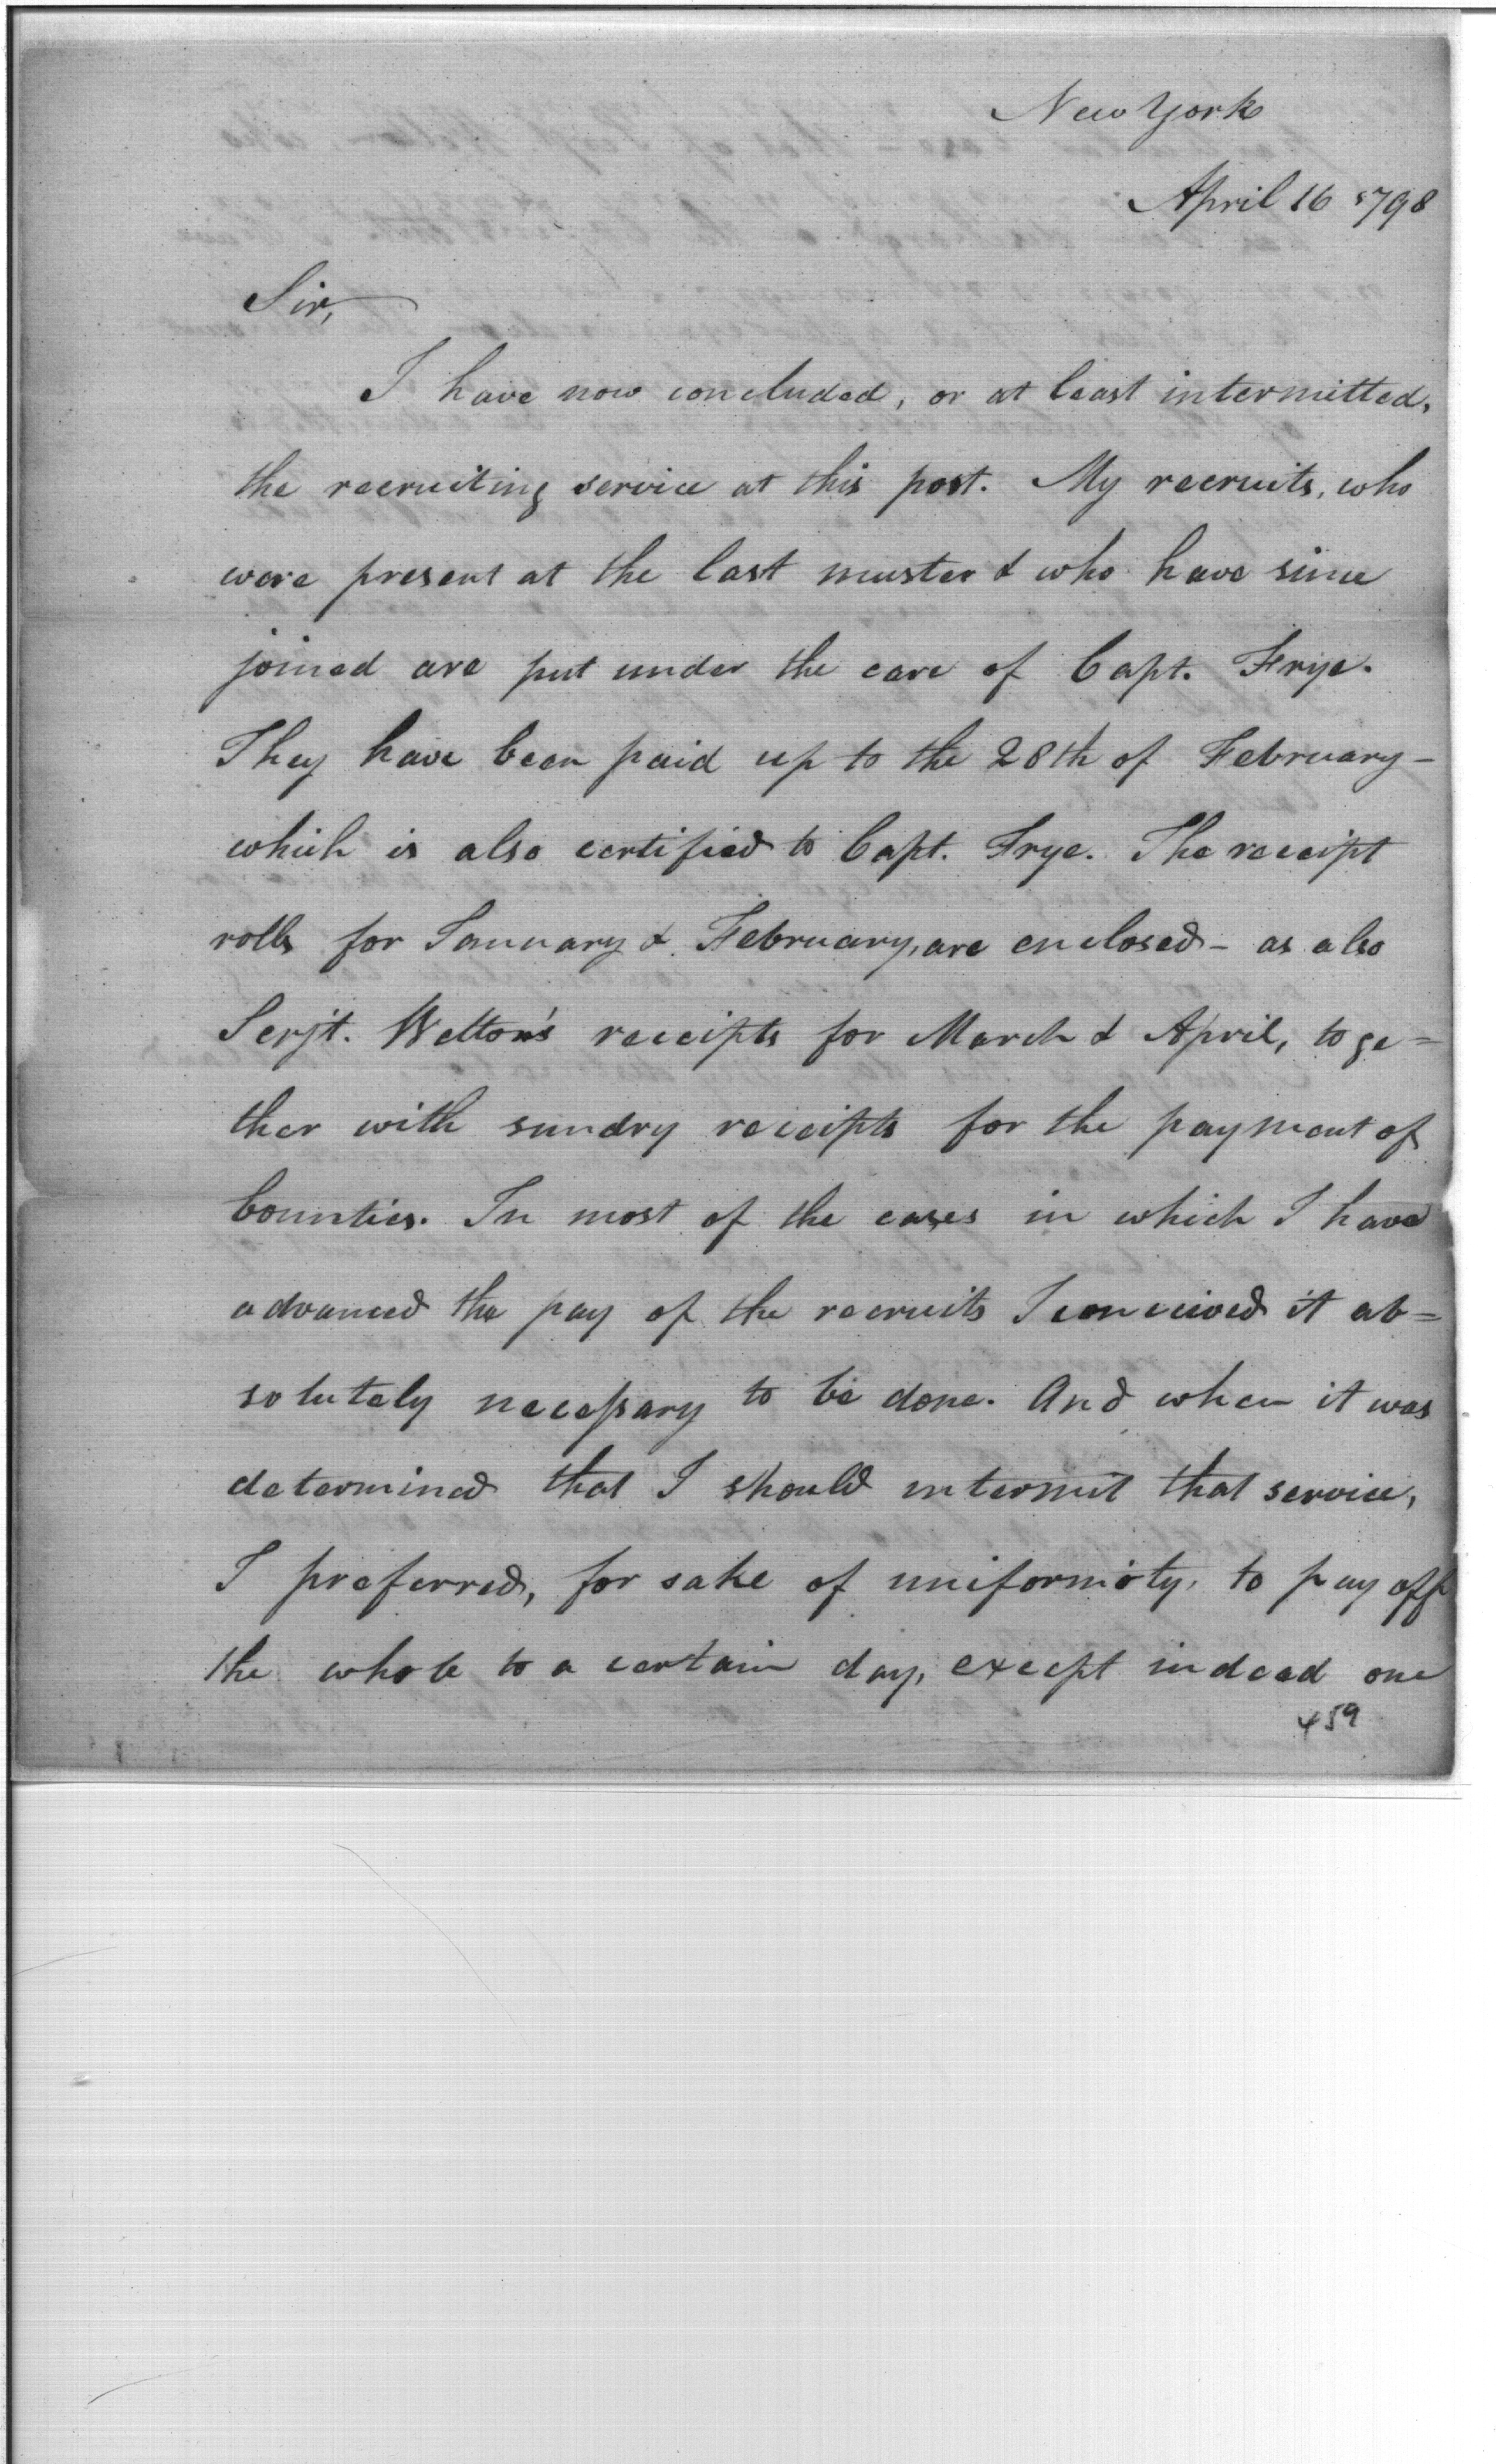 New York
April 16 1798
Sir,
I have now concluded, or at least intermitted,
the recruiting service at this post. My recruits, who
were present at the last muster & who have since
joined are put under the care of Capt. Frye.
They have been paid up to the 28th of February -
which is also certified to Capt. Frye. The receipt
rolls for January & February, are enclosed - as also
Serjt. Welton's receipts for March & April, toge=
ther with sundry receipts for the payment of
bounties. In most of the cases in which I have
advanced the pay of the recruits I conceived it ab=
solutely necessary to be done. And when it was
determined that I should intermit that service,
I preferred, for sake of uniformity, to pay off
the whole to a certain day, except indeed one
459